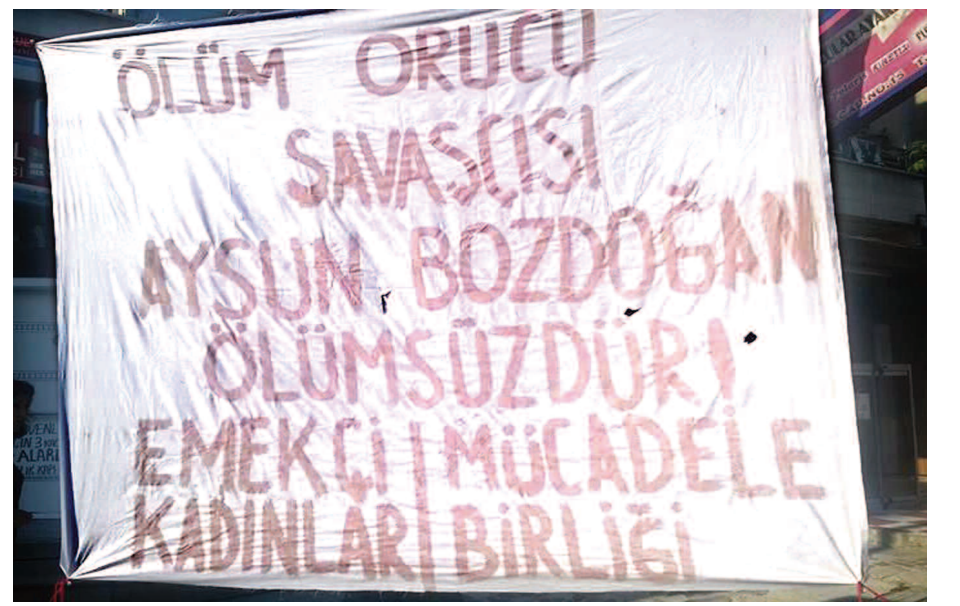 ÖLÜM ORUCU
SAVASCISI
AYSUN BOZDOĞAN
ÖLÜMSÜZDÜR!
EMEKÇİ | MÜCADELE
KADINLAR | BİRLİĞİ